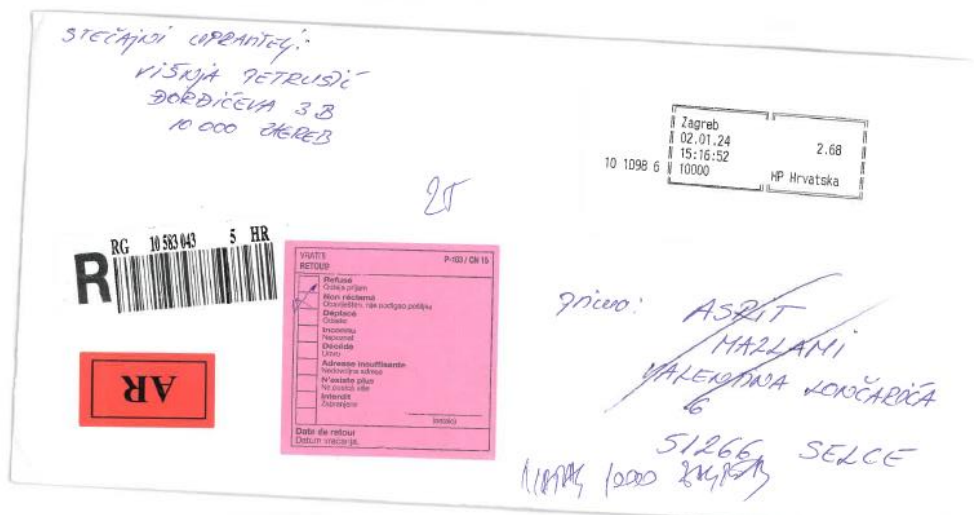 STEČAJNI UPRAVITELJ:
VIŠNJA PETRUSIĆ
ĐORĐIĆEVA 3 B
10 000 ZAGREB
Zagreb
02.01.24
2.68
15:16:52
10 1098 6
10000
HP Hrvatska
RG 10 583 043 5 HR
R
AR
VRATITI
RETOUR
P-103 / CN 15
Refusé
Odbija prijam
Non réclamé
Obaviješten, nije podigao pošiljku
Déplacé
Odselio
Inconnu
Nepoznat
Décédé
Umro
Adresse insuffisante
Nedovoljna adresa
N'existe plus
Ne postoji više
Interdit
Zabranjeno
(ostalo)
Date de retour
Datum vraćanja
ASRIT
MAZLAMI
VALENTINA LONČARIĆA
6
51266 SELCE
10000